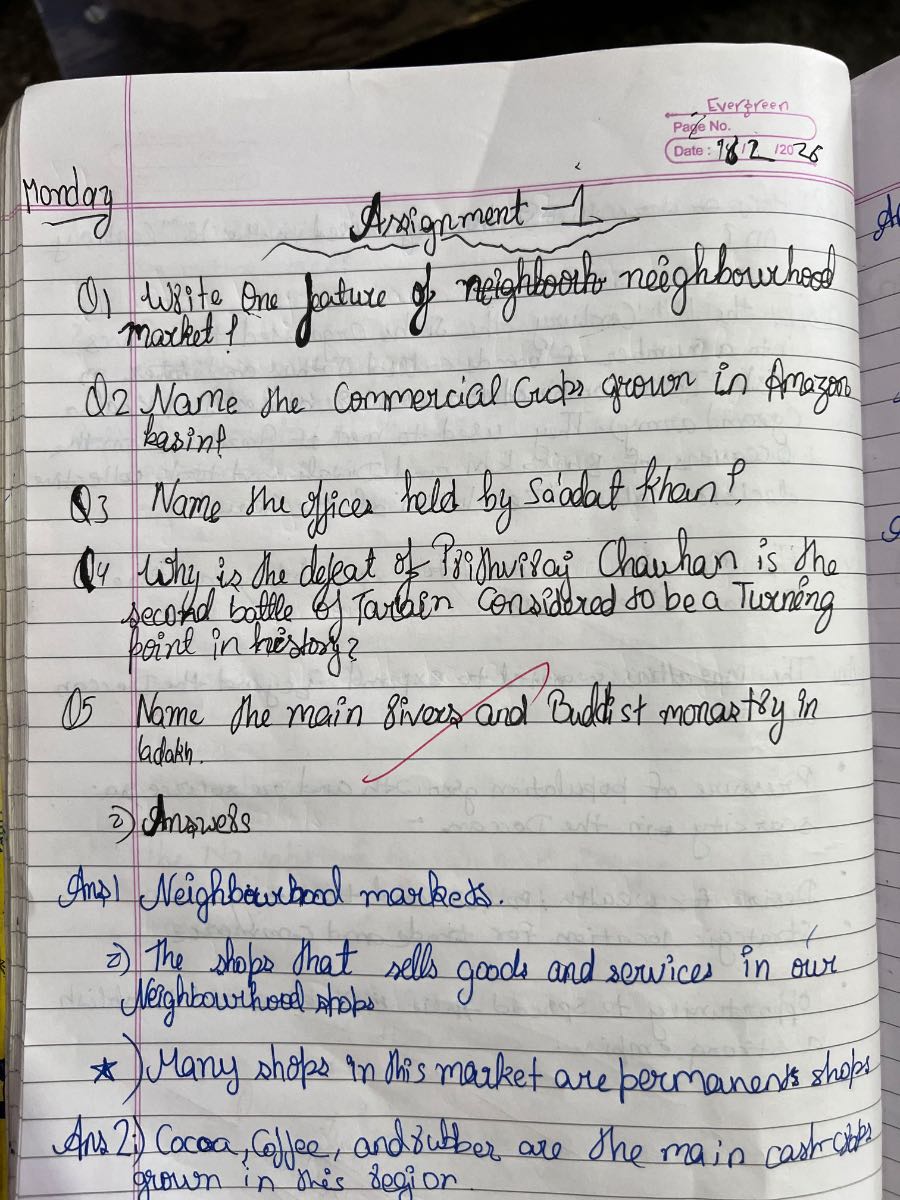 Evergreen
Page No. 2
Date : 18/2/2026
Monday
Assignment - 1
Q1 Write One feature of neighbooth neeighbourhood
market ?
Q2 Name the Commercial Crops grown in Amazon
basin?
Q3 Name the offices held by Sa'adat khan ?
Q4 Why is the defeat of Prithviraj Chauhan is the
second battle of Tarain Considered to be a Turning
point in history?
Q5 Name the main rivers and Buddist monastry in
ladakh.
Answers
Ans1 Neighbourhood markets.
The shops that sells goods and services in our
Neighbourhood shops
★) Many shops in this market are permanents shops
Ans 2:) Cocoa, Coffee, and rubber are the main cash crops
grown in this region.